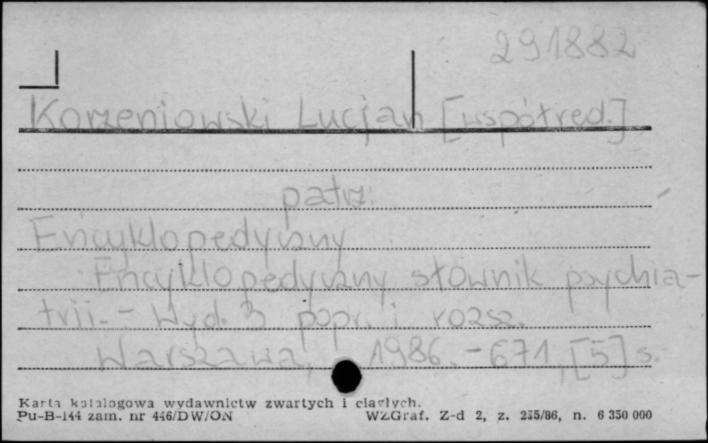 291882
Korzeniowski Lucjan [współred.]
patrz:
Encyklopedyczny
Encyklopedyczny słownik psychia-
trii. - Wyd. 3 popr. i rozsz.
Warszawa, 1986. - 671, [5] s.
Karta katalogowa wydawnictw zwartych i ciągłych.
Pu-B-144 zam. nr 446/DW/ON WZGraf. Z-d 2, z. 235/86, n. 6 350 000